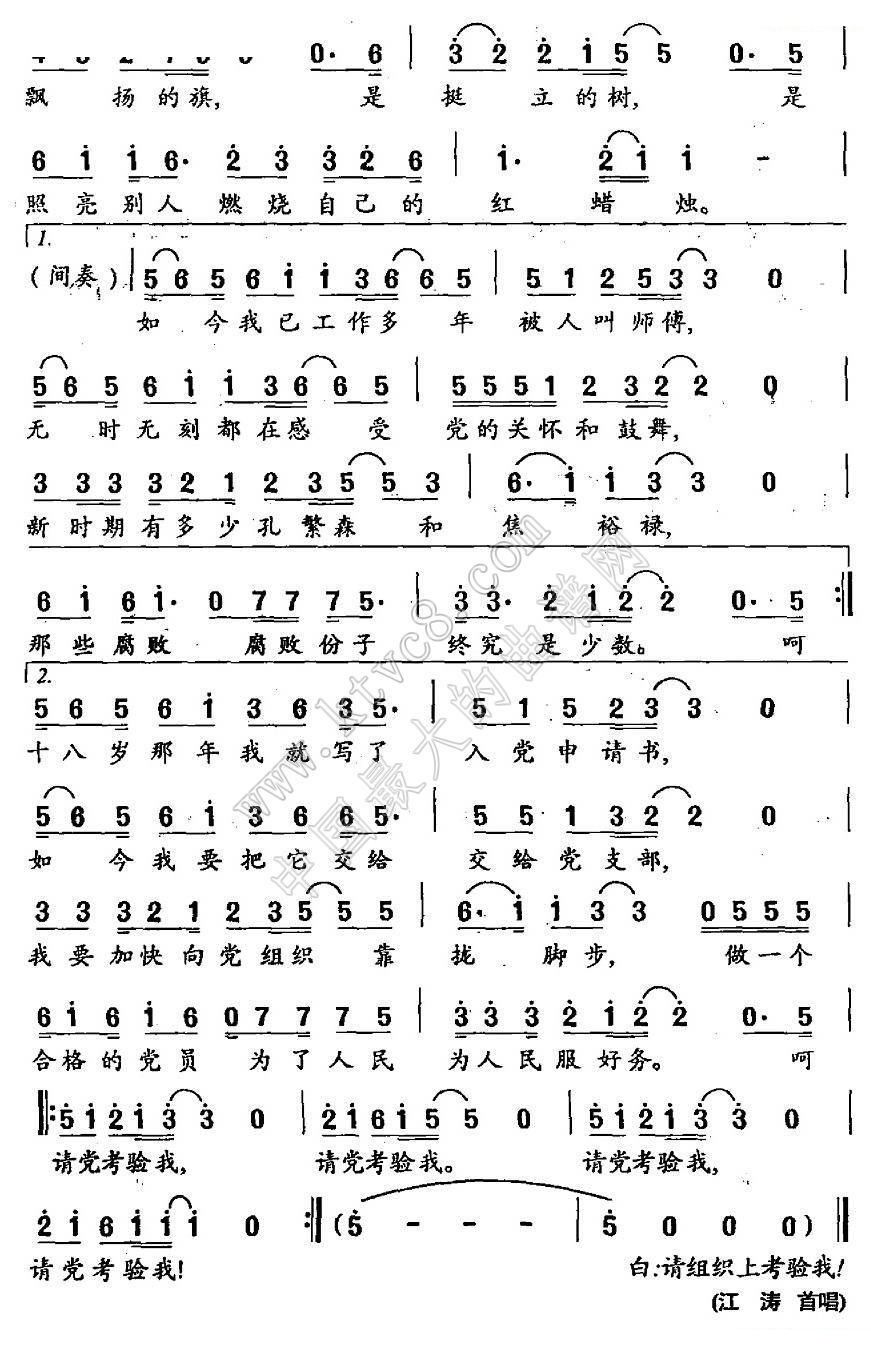 0· 6 | 3 2 2 i 5 5 0· 5 |
飘扬的旗, 是挺立的树, 是
6 i i 6· 2 3 3 2 6 | i· 2 i i - |
照亮别人燃烧自己的红蜡烛。
1.
(间奏) | 5 6 5 6 i i 3 6 6 6 5 | 5 1 2 5 3 3 0 |
如今我已工作多年被人叫师傅,
5 6 5 6 i i 3 6 6 6 5 | 5 5 5 1 2 3 2 2 2 0 |
无时无刻都在感受党的关怀和鼓舞,
3 3 3 3 2 1 2 3 5 5 5 3 | 6· i i 3 3 0 |
新时期有多少孔繁森和焦裕禄,
6 i 6 i· 0 7 7 7 5· | 3 3· 2 i 2 2 0· 5 :||
那些腐败 腐败份子终究是少数。 呵
2.
5 6 5 6 i 3 6 3 5· | 5 1 5 2 3 3 0 |
十八岁那年我就写了入党申请书,
5 6 5 6 i 3 6 6 5· | 5 5 1 3 2 2 0 |
如今我要把它交给交给党支部,
3 3 3 2 1 2 3 5 5 5 5 | 6· i i 3 3 0 5 5 5 |
我要加快向党组织靠拢脚步, 做一个
6 i 6 i 6 0 7 7 7 5 | 3 3 3 2 i 2 2 0· 5 |
合格的党员 为了人民为人民服好务。 呵
||: 5 i 2 i 3 3 0 | 2 i 6 i 5 5 0 | 5 i 2 i 3 3 0 |
请党考验我, 请党考验我。 请党考验我,
2 i 6 i i i 0 :|| (5 - - - | 5 0 0 0) ||
请党考验我! 白:请组织上考验我!
(江涛 首唱)
www.ktvc8.com
中国最大的曲谱网